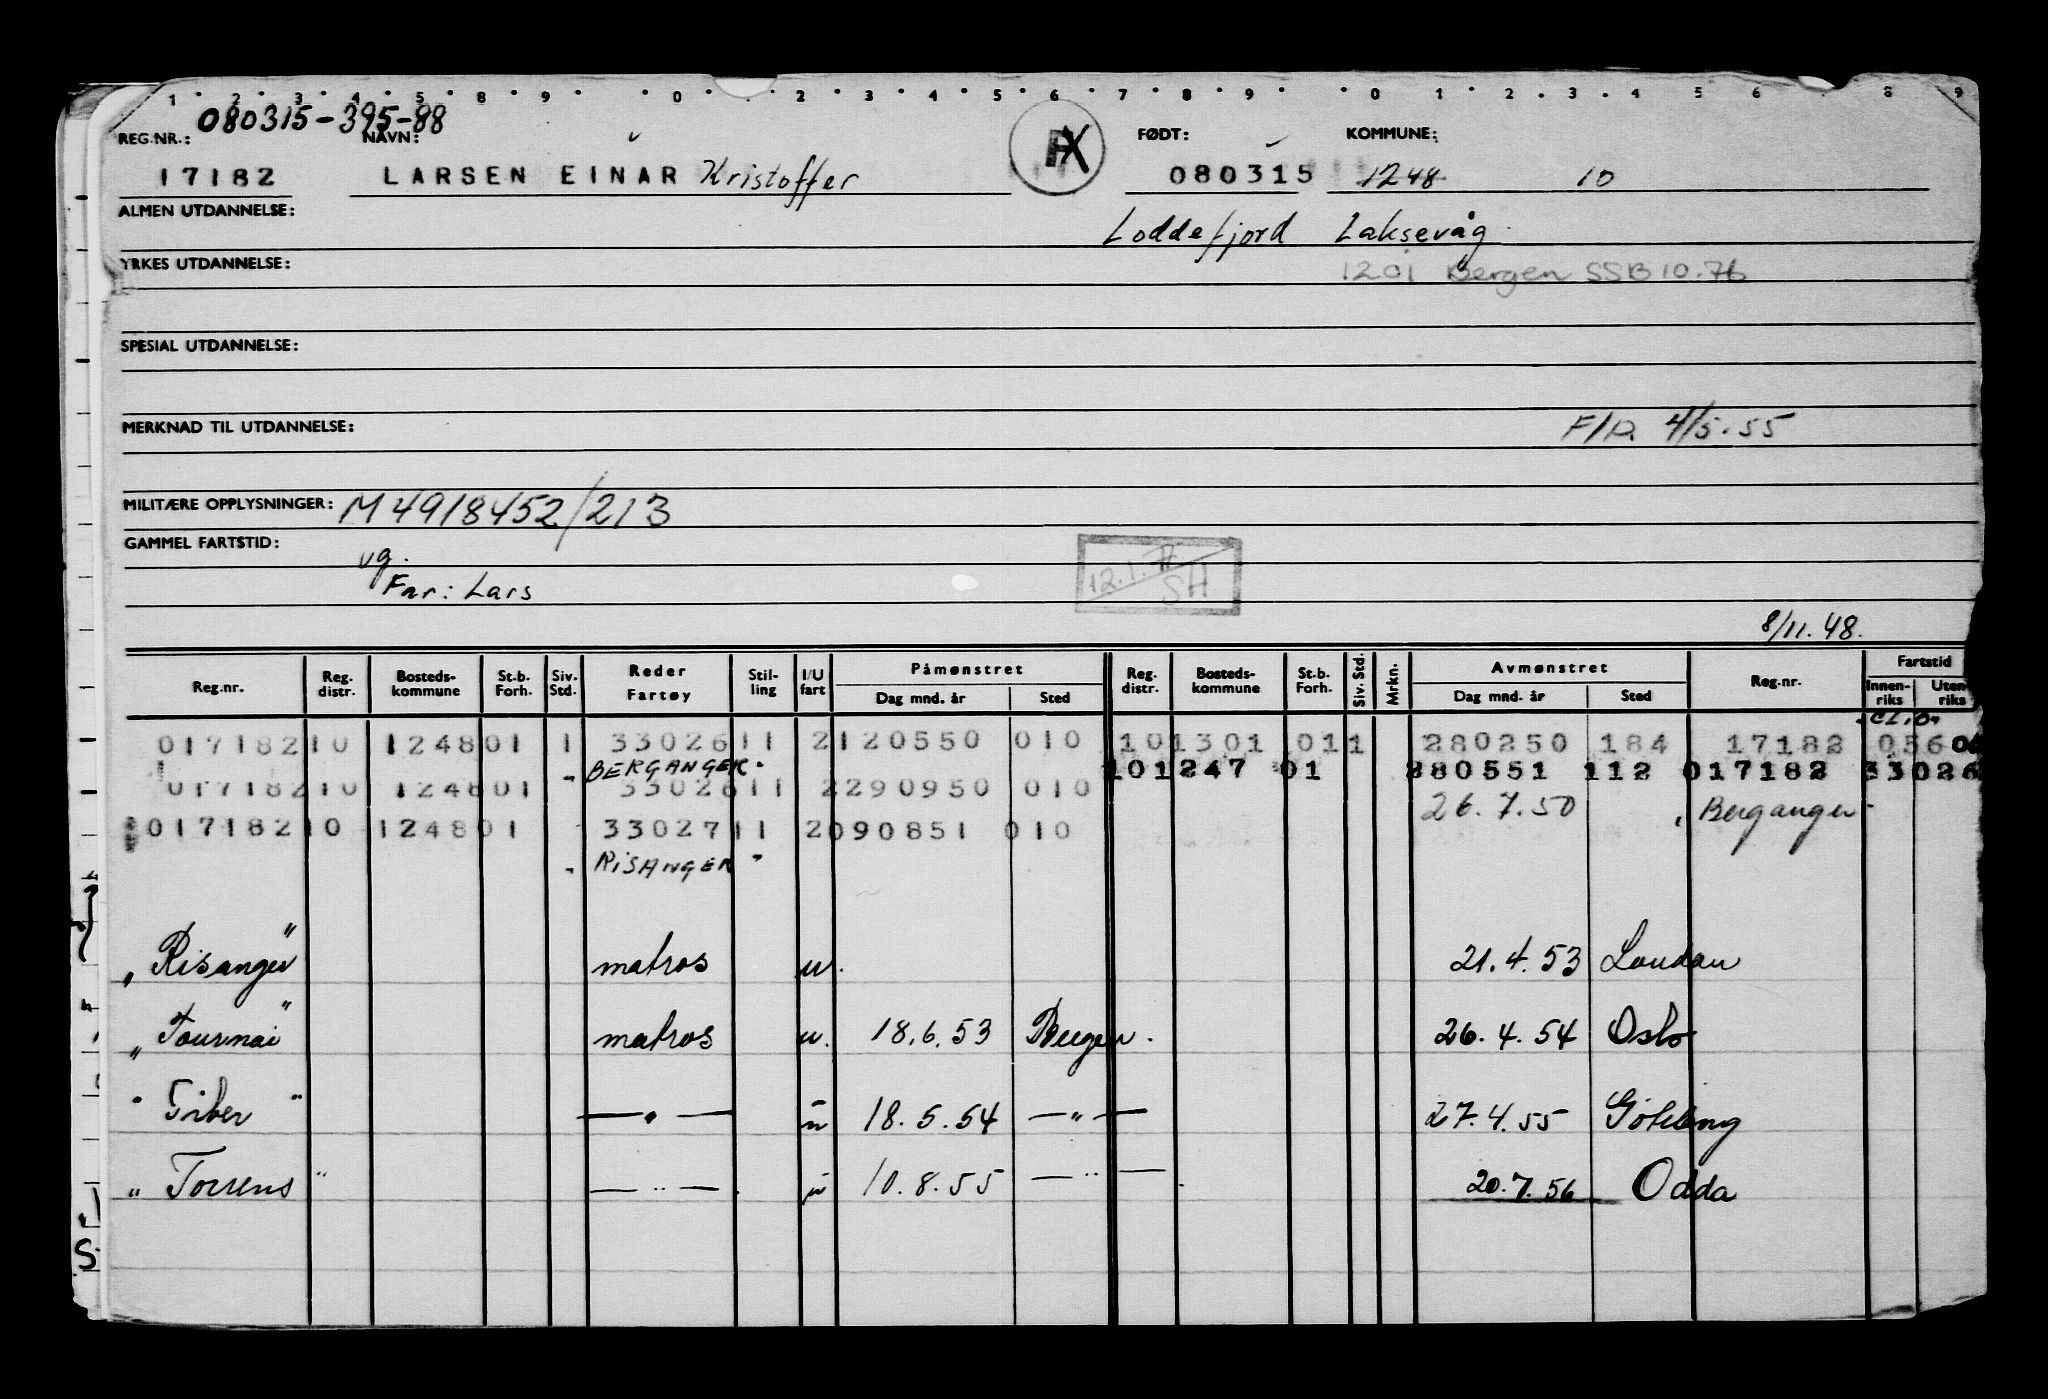 1 2 3 4 5 8 9 0 2 3 4 5 6 7 8 9 0 1 2 3 4 5 6 8 9
080315-395-88
REG.NR.: NAVN: FØDT: KOMMUNE:
17182 LARSEN EINAR Kristoffer 080315 1248 10
ALMEN UTDANNELSE: Loddefjord Laksevåg
YRKES UTDANNELSE: 1201 Bergen SSB 10.76
SPESIAL UTDANNELSE:
MERKNAD TIL UTDANNELSE: F/P. 4/5.55
MILITÆRE OPPLYSNINGER: M 4918452/213
GAMMEL FARTSTID:
vg.
Far: Lars
12.1. SH
8/11.48.
Reg.nr. Reg. distr. Bosteds-kommune St.b. Forh. Siv. Std. Reder Fartøy Stil-ling I/U fart Påmønstret Dag mnd. år Sted Reg. distr. Bosteds-kommune St.b. Forh. Siv. Std. Mrkn. Avmønstret Dag mnd. år Sted Reg.nr. Fartstid Innen-riks Uten-riks
01718210 124801 1 3302611 2120550 010 101301 011 280250 184 17182 056
"BERGANGER" 101247 01 280551 112 017182 33026
01718210 124801 3302611 2290950 010 26.7.50 "Berganger"
01718210 124801 3302711 2090851 010
"RISANGER"
"Risanger" matros u. 21.4.53 London
"Tournai" matros u. 18.6.53 Bergen. 26.4.54 Oslo
"Tiber" — " — u 18.5.54 — " — 27.4.55 Göteborg
"Torrens" — " — u 10.8.55 — " — 20.7.56 Odda
S